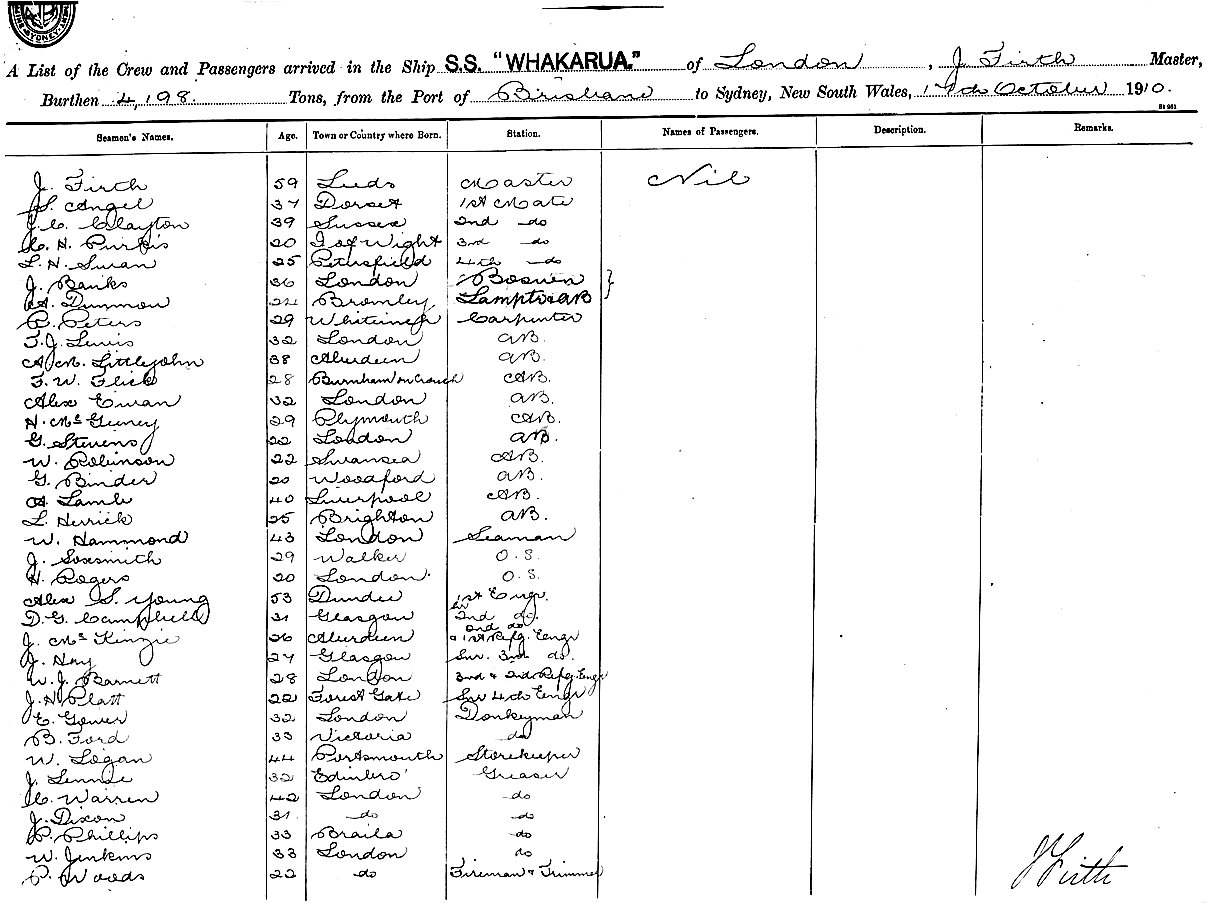 A List of the Crew and Passengers arrived in the Ship S.S. "WHAKARUA." of London, J. Firth Master,
Burthen 4,198. Tons, from the Port of Brisbane to Sydney, New South Wales, 17th October 1910.
Seamen's Names. Age. Town or Country where Born. Station. Names of Passengers. Description. Remarks.
J. Firth 59 Leeds Master Nil
S. Angel 37 Dorset 1st Mate
J. C. Clayton 39 Sussex 2nd do
C. H. Purkis 20 I of Wight 3rd do
L. H. Swan 25 Petersfield 4th do
J. Banks 36 London Bosun
A. Dummon 24 Bromley Lamptr & AB
C. Peters 29 Carpenter
T. J. Lewis 32 London AB.
A. M. Littlejohn 38 Aberdeen AB.
F. W. Flick 28 Burnham on Crouch AB.
Alex Ewan 32 London AB.
H. Mc 29 Plymouth AB.
G. Stevens 22 London AB.
W. Robinson 22 Swansea AB.
G. Binder 20 Woodford AB.
A. Lamb 40 Liverpool AB.
L. Herrick 25 Brighton AB.
W. Hammond 43 London Seaman
J. Sixsmith 29 Walker O.S.
H. Rogers 20 London. O.S.
Alex S. Young 53 Dundee 1st Engr.
D. G. Campbell 31 Glasgow 2nd do.
J. Mc Kinzie 26 Aberdeen 2nd do & 1st Refg. Engr
J. Hay 27 Glasgow Jnr. 3rd do.
W. J. Barnett 28 London 3rd & 2nd Refg. Engr
J. H. Platt 22 Forest Gate Jnr 4th Engr
E. Gower 32 London Donkeyman
B. Ford 33 Victoria do
W. Logan 44 Portsmouth Storekeeper
J. Lennie 32 Edinbro' Greaser
C. Warren 42 London do
J. Dixon 31 do do
P. Phillips 33 Braila do
W. Jenkins 33 London do
P. Woods 22 do Fireman & Trimmer
J Firth